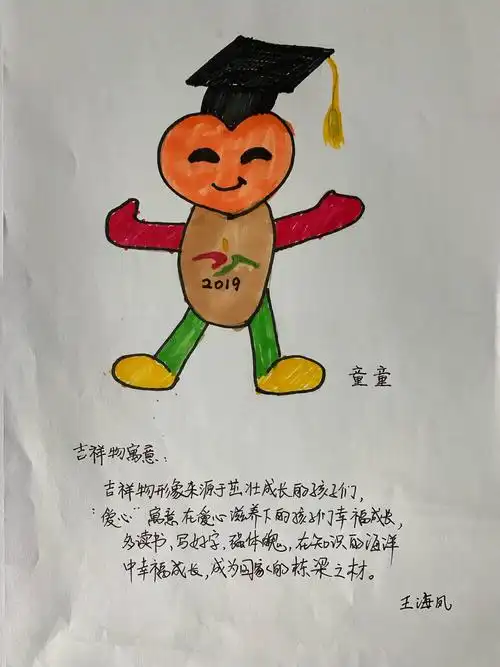 2019
童童
吉祥物寓意：
吉祥物形象来源于茁壮成长的孩子们，
“爱心”寓意在爱心滋养下的孩子们幸福成长，
多读书，写好字，强体魄，在知识的海洋
中幸福成长，成为国家的栋梁之材。
王海凤